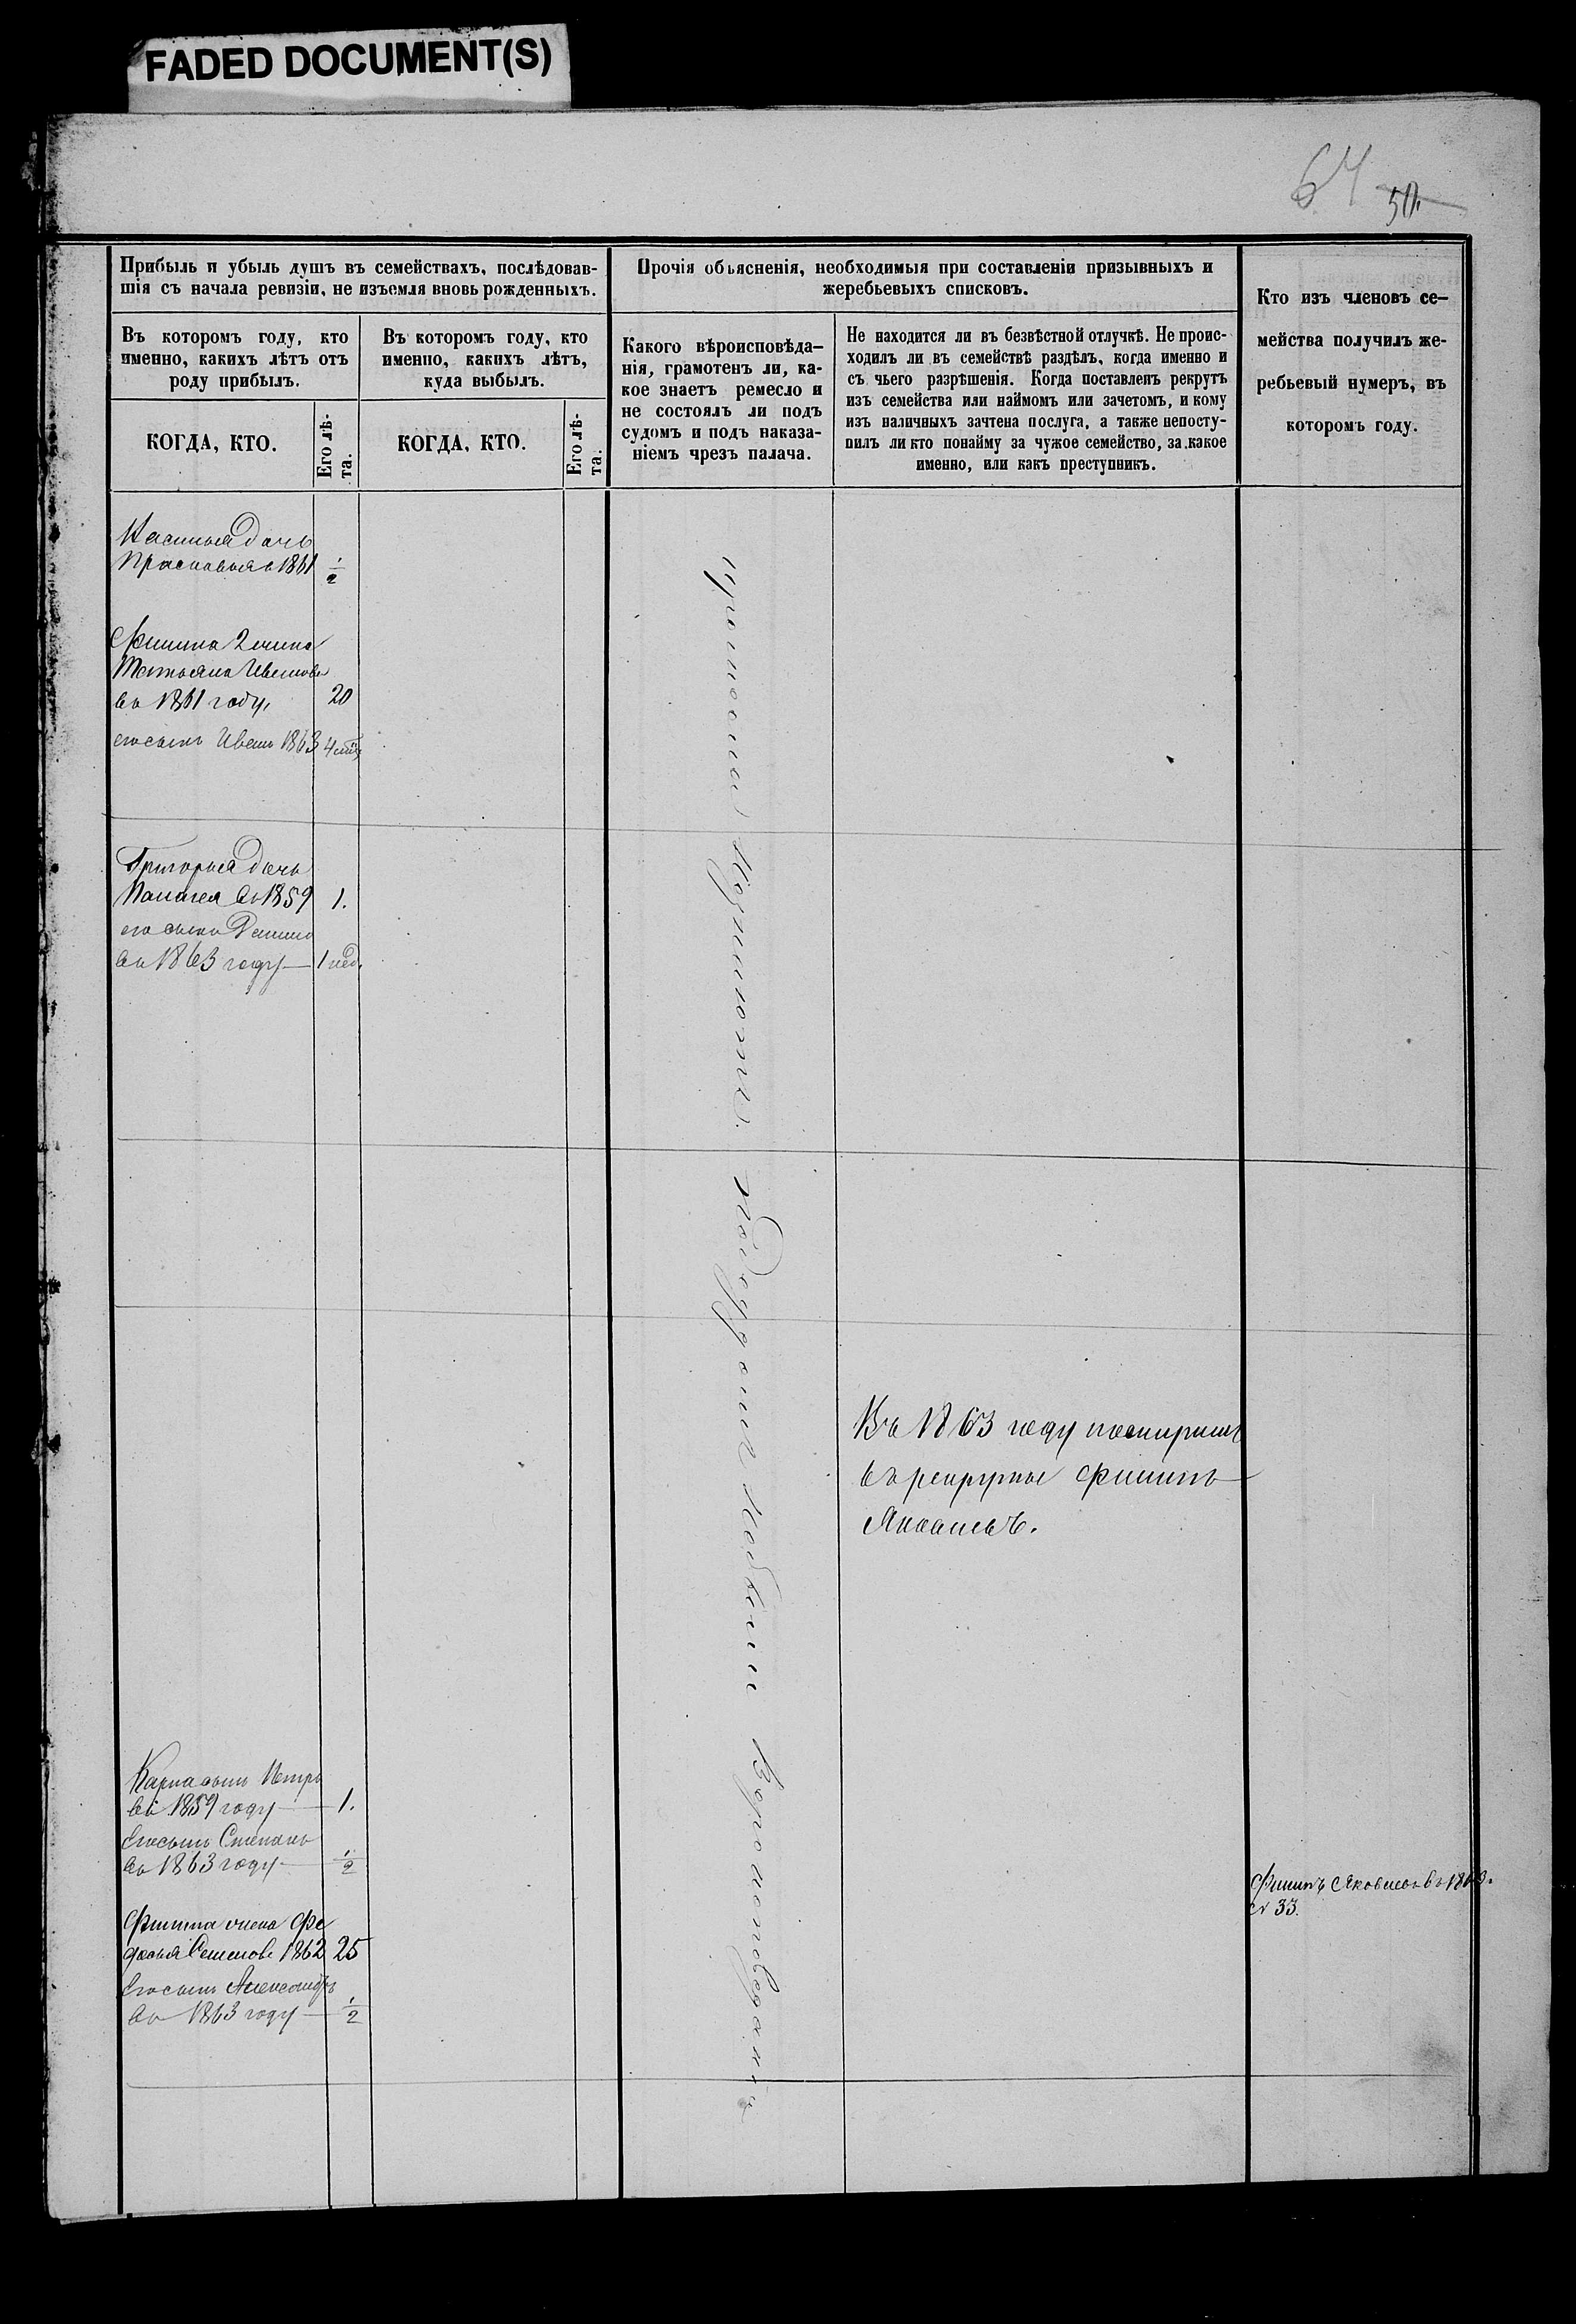 FADED DOCUMENT(S)
64
50
Прибыль и убыль душъ въ семействахъ, послѣдовав-
шія съ начала ревизіи, не изъемля вновь рожденныхъ.
Въ которомъ году, кто
именно, какихъ лѣтъ отъ
роду прибылъ.
КОГДА, КТО.
Его лѣ-
та.
Въ которомъ году, кто
именно, какихъ лѣтъ,
куда выбылъ.
КОГДА, КТО.
Его лѣ-
та.
Прочія объясненія, необходимыя при составленіи призывныхъ и
жеребьевыхъ списковъ.
Какого вѣроисповѣда-
нія, грамотенъ ли, ка-
кое знаетъ ремесло и
не состоялъ ли подъ
судомъ и подъ наказа-
ніемъ чрезъ палача.
Не находится ли въ безвѣстной отлучкѣ. Не проис-
ходилъ ли въ семействѣ раздѣлъ, когда именно и
съ чьего разрѣшенія. Когда поставленъ рекрутъ
изъ семейства или наймомъ или зачетомъ, и кому
изъ наличныхъ зачтена послуга, а также непосту-
пилъ ли кто понайму за чужое семейство, за какое
именно, или какъ преступникъ.
Кто изъ членовъ се-
мейства получилъ же-
ребьевый нумеръ, въ
которомъ году.
Касьяна дочь
Прасковья в 1861 1/2
Филипа 2 жена
Татьяна Иванова
въ 1861 году, 20
его сынъ Иванъ 1863 4
Григорья дочь
Палагея въ 1859 1.
его сынъ
въ 1863 году 1 нед.
Карпа сынъ Петръ
въ 1859 году 1.
Его сынъ Степанъ
въ 1863 году 1/2
Филипа жена Фе
досья Семенова 1862 25
Его сынъ Александръ
въ 1863 году 1/2
Въ 1863 году
въ рекруты Филипъ
Яковлевъ.
Филипъ Яковлевъ въ 1863.
№ 33.